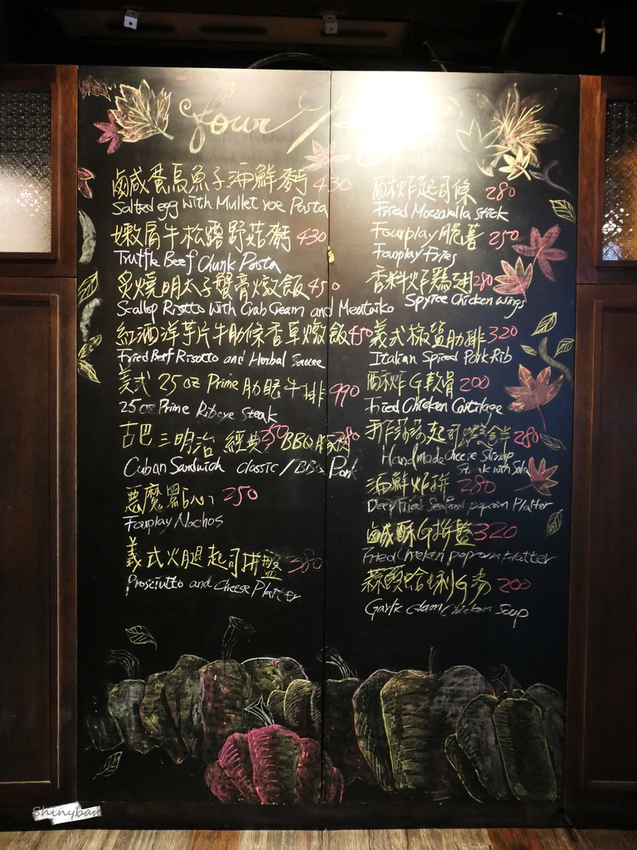 four
鹹蛋烏魚子海鮮麵 430
Salted egg with Mullet roe Pasta
嫩肩牛松露野菇麵 430
Truffle Beef Chunk Pasta
炙燒明太子蟹膏燉飯 450
Scallop Risotto with Crab Cream and Mentaiko
紅酒洋芋片牛肋條香草燉飯 450
Fried Beef Risotto and Herbal Sauce
美式 25oz Prime 肋眼牛排 990
25oz Prime Ribeye Steak
古巴三明治 經典350 BBQ豚
Cuban Sandwich classic / BBQ Pork
惡魔點心 250
Fourplay Nachos
義式火腿起司拼盤 380
Prosciutto and Cheese Platter
酥炸起司條 280
Fried Mozzarella stick
Fourplay脆薯 250
Fourplay Fries
香料炸雞翅 280
Spyice Chicken wings
義式椒鹽肋排 320
Italian Spiced Pork Rib
酥炸G軟骨 200
Fried Chicken Cartilage
起司 280
Handmade Cheese Shrimp
Sticks with Salsa
海鮮炸拼 280
Deep Fried Seafood popcorn Platter
鹹酥G拼盤 320
Fried Chicken popcorn Platter
蒜頭蛤蜊G湯 200
Garlic clam Chicken Soup
Shinyban